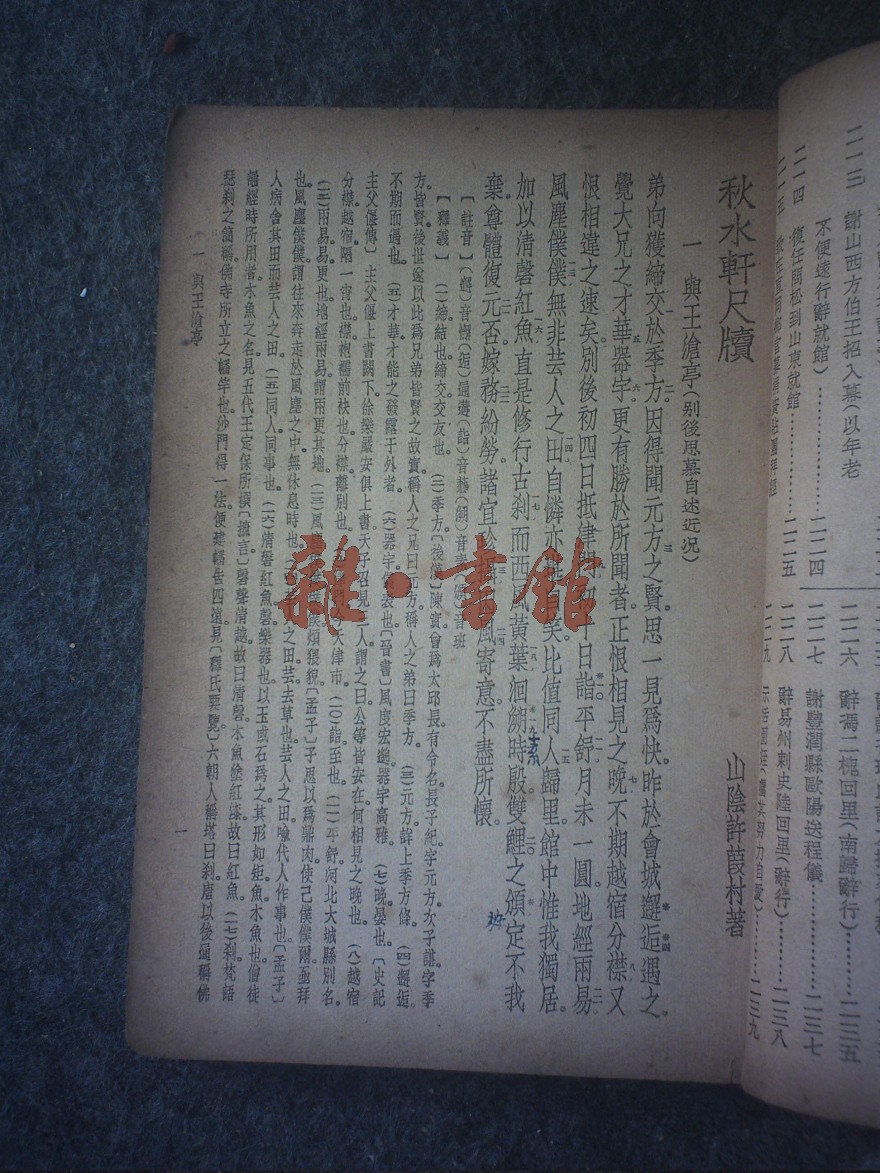 秋水軒尺牘
山陰許葭村著
一 與王滄亭(别後思慕自述近況)
弟向獲締交於季方因得聞元方之賢思一見爲快昨於會城邂逅遇之。
覺大兄之才華器宇更有勝於所聞者正恨相見之晚不期越宿分襟又
恨相違之速矣別後初四日抵津門
日詣平舒月未一圓地經兩易
風塵僕僕無非芸人之田自憐亦
比值同人歸里館中惟我獨居
加以清磬紅魚直是修行古刹而西風黃葉洄溯時殷雙鯉之頒定不我
棄尊體復元否嫁務紛勞諸宜
風寄意不盡所懷。
班
【註音】(邂)音懈(逅)
(詣)音藝
音班
【釋義】(一)締結也締交交友也。(二)季方。〔後漢〕陳寔會爲太邱長有令名長子紀字元方次子諶字季
方皆賢後世遂以此爲兄弟皆賢之故實稱人之兄曰元方稱人之弟曰季方。(三)元方詳上季方條。(四)邂逅
不期而遇也。(五)才華才能之發露于外者。(六)器宇
〔晉書〕風度宏邈器宇高雅。(七)晚晏也。〔史記
主父偃傳〕主父偃上書闕下徐樂嚴安俱上書天子召見
人謂之曰公等皆安在何相見之晚也。(八)越宿
分襟越宿隔一宵也襟袍襦前袂也分襟離別也。
天津市。(一〇)詣至也(一一)平舒河北大城縣別名
(一二)兩易易更也地經兩易謂兩更其地(一三)風
煩猥貌〔孟子〕子思以爲鼎肉使己僕僕爾亟拜
也風塵僕僕謂往來奔走於風塵之中無休息時也。
之田芸去草也芸人之田喻代人作事也〔孟子〕
人病舍其田而芸人之田。(一五)同人同事也(一六)清磬紅魚磬樂器也以玉或石爲之其形如矩魚木魚也僧徒
誦經時所用者木魚之名見五代王定保所撰〔摭言〕磬聲清越故曰清磬木魚塗紅漆故曰紅魚(一七)刹梵語
瑟刹之簡稱佛寺所立之幡竿也沙門得一法便建幡告四遠見〔釋氏要覽〕六朝人稱塔曰刹唐以後通稱佛
一 與王滄亭
一
雜·書館
二一三 謝山西方伯王招入幕(以年老
不便遠行辭就館)……二二四
二一四 復任問松到山東就館……二二五
二二六 辭馮二槐回里(南歸辭行)……二三五
二二七 謝豐潤縣歐陽送程儀……二三七
二二八 辭易州刺史陸回里(辭行)……二三八
二二九
……二三九